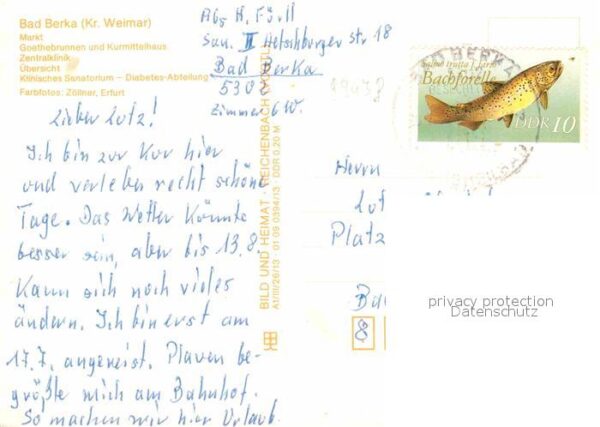 Bad Berka (Kr. Weimar)
Markt
Goethebrunnen und Kurmittelhaus
Zentralklinik
Übersicht
Klinisches Sanatorium – Diabetes-Abteilung
Farbfotos: Zöllner, Erfurt
Abs H. Füll
San. II Hetschburger str 18
Bad Berka
5302
Zimmer 610.
Lieber Lutz!
Ich bin zur Kur hier
und verlebe recht schöne
Tage. Das Wetter könnte
besser sein, aber bis 13.8.
kann sich noch vieles
ändern. Ich bin erst am
17.7. angereist. Plaven be-
größte mich am Bahnhof.
So machen wir hier Urlaub.
BILD UND HEIMAT REICHENBACH
A1/III/26/13 01 09 0394/13 DDR 0,20 M
BAD BERKA
Salmo trutta f. fario
Bachforelle
DDR 10
Herrn
Platz
8
privacy protection
Datenschutz